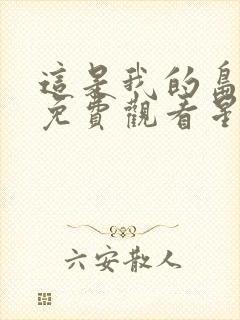 這是我的島
免費觀看星
六安散人